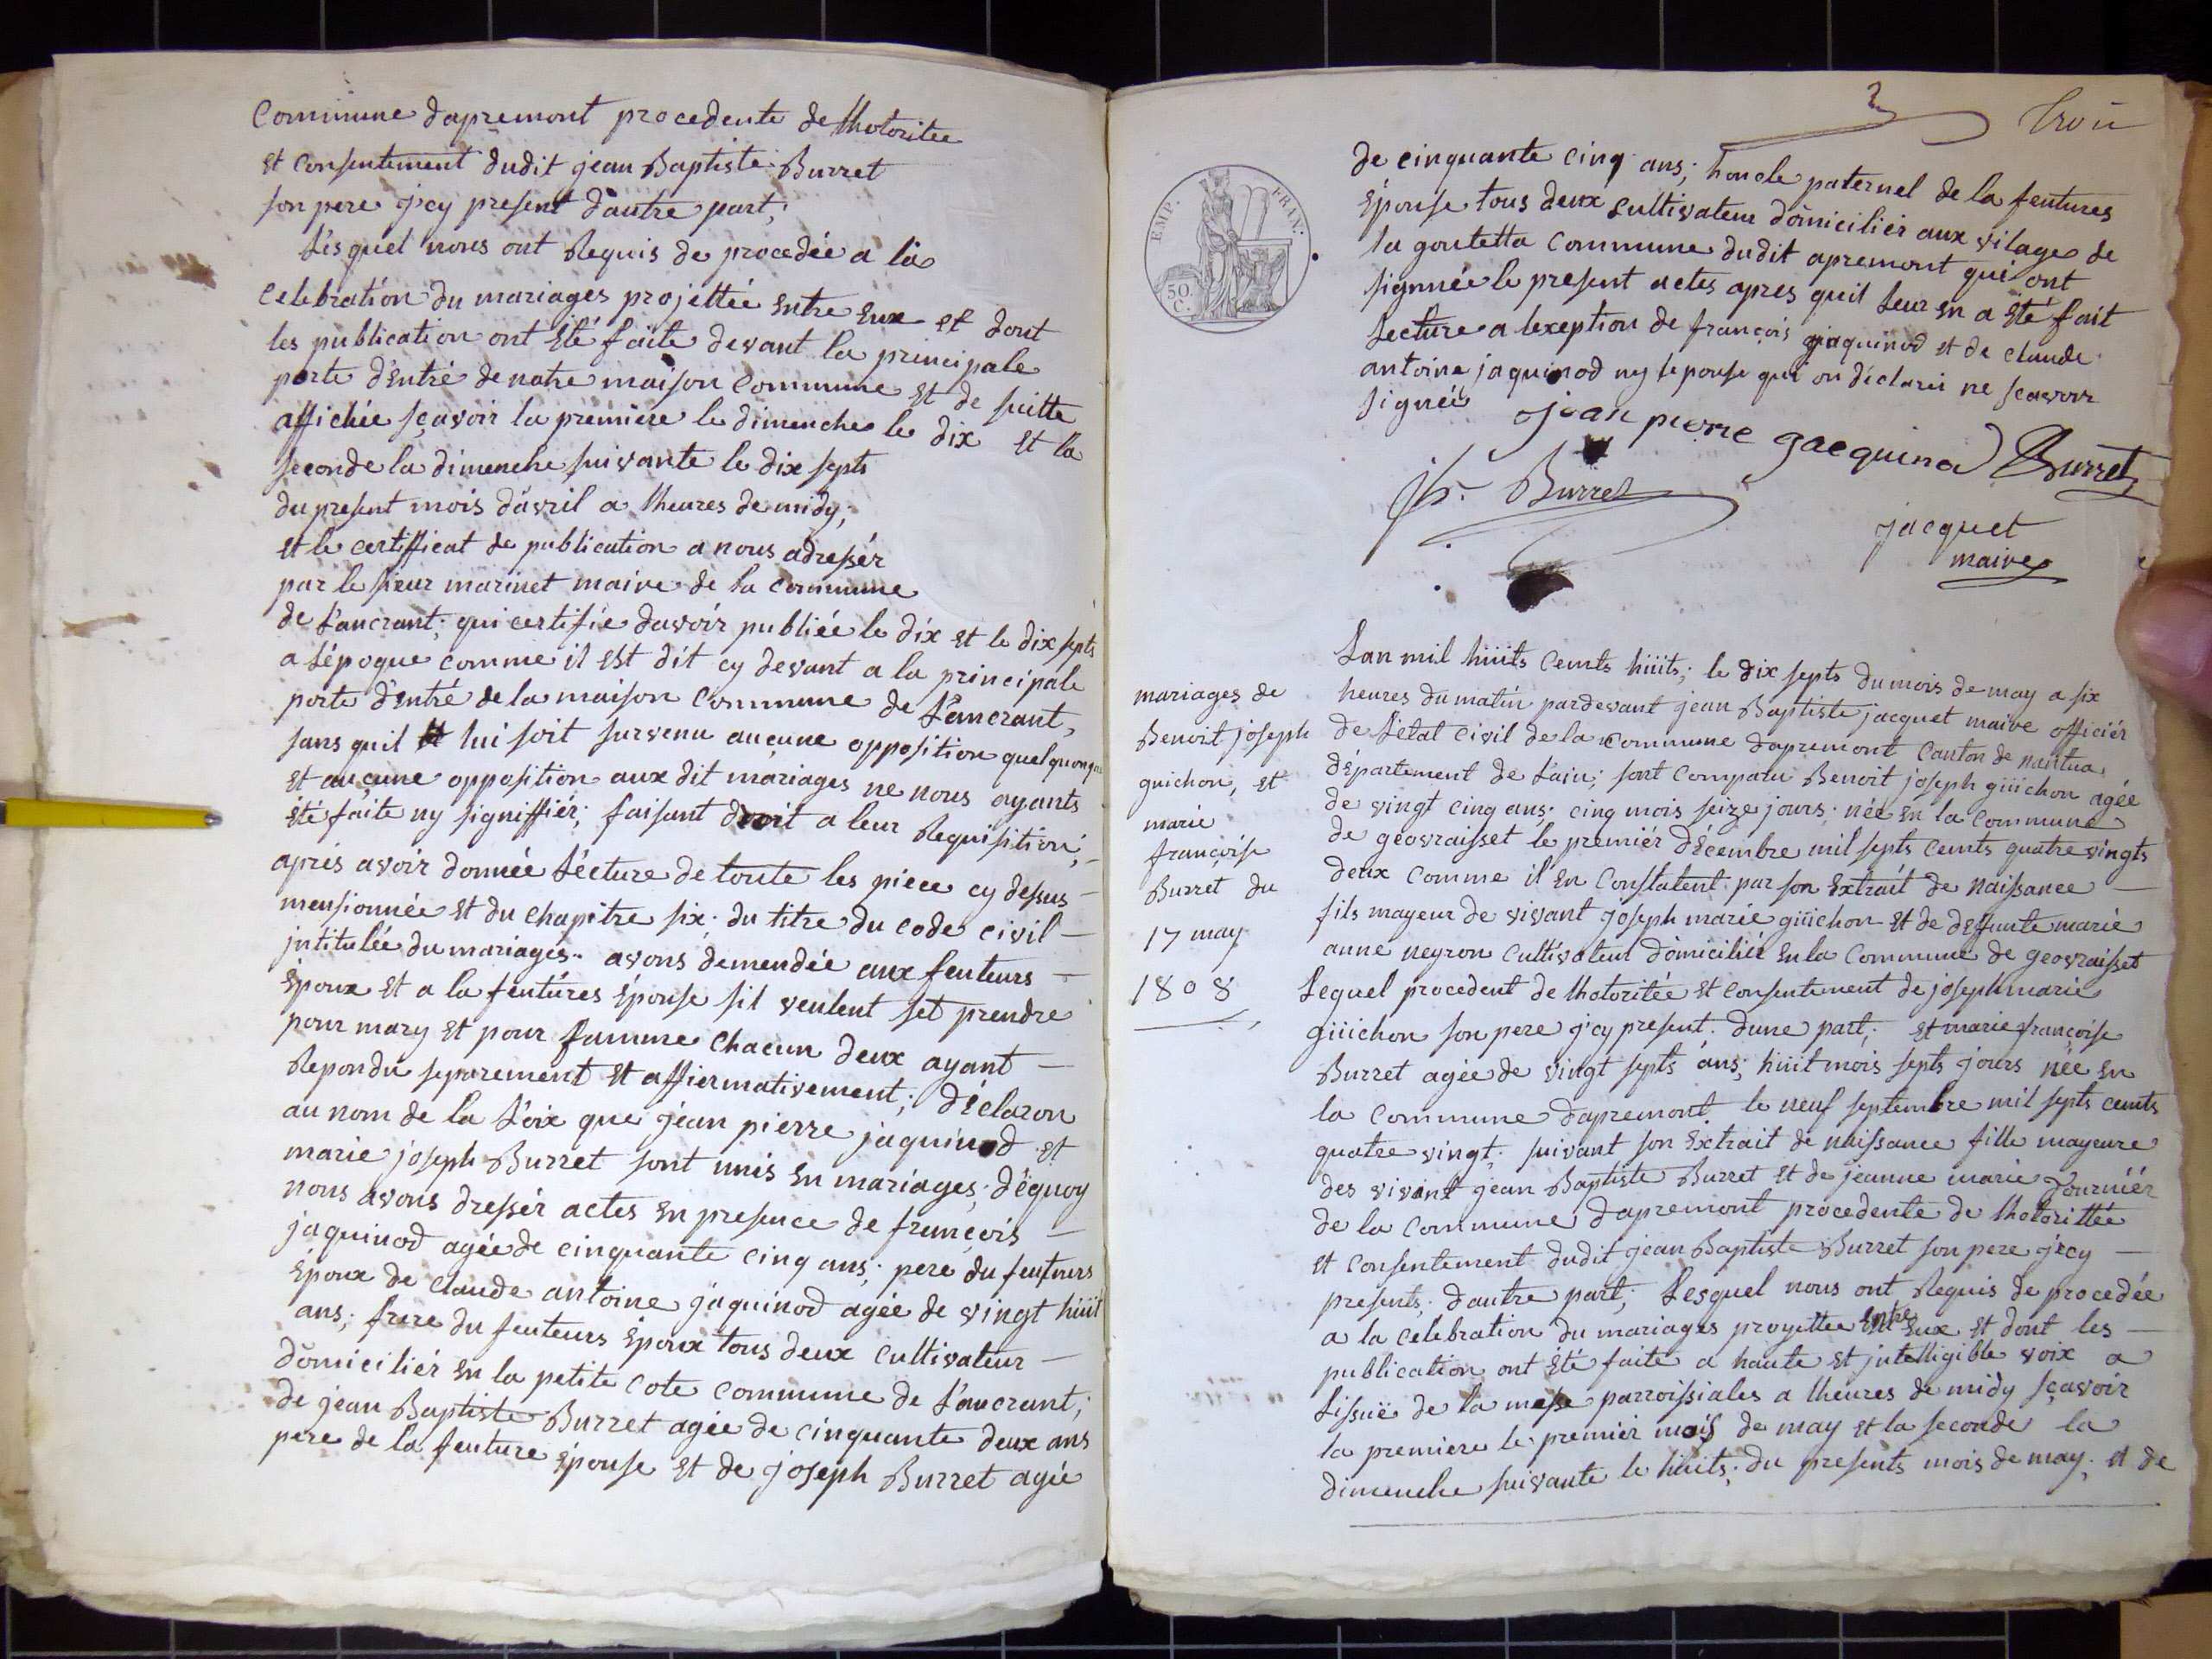 Commune dapremont procedente de lhotoritée
et consentement dudit jean Baptiste Burret
son pere j'cy present d'autre part;
Lesquel nous ont Requis de procedée a la
celebration du mariages projettée entre eux et dont
les publication ont été faite devant la principale
porte d'entré de natre maison Commune et de suitte
affichée sçavoir la premiere le dimenche le dix et la
seconde la dimenche suivante le dix septs
du present mois d'avril a lheures de midy;
et le certifficat de publication a nous adressér
par le sieur marinet maire de la commune
de Lancrant; qui certifie davoir publiée le dix et le dix septs
a l'époque comme il est dit cy devant a la principale
porte d'entré de la maison Commune de Lancrant,
sans quil lui soit survenu aucune opposition quelquonque
et aucune opposition aux dit mariages ne nous ayants
été faite ny signiffiér; faisant droit a leur Requisition;
après avoir donnée Lécture de toute les piece cy dessus
mensionnée et du chapitre six; du titre du code civil
jntitulée du mariages. avons demendée aux feuteurs
époux et a la feutures épouse sil veulent set prendre
pour mary et pour famme chacun deux ayant
Repondu separement et affiermativement; déclaron
au nom de la Loix que jean pierre jaquinod et
marie joseph Burret sont unis en mariages; déquoy
nous avons dressér actes en presence de françois
jaquinod agée de cinquante cinq ans; pere du feuturs
époux de claude antoine jaquinod agée de vingt huit
ans; frere du feuteurs époux tous deux cultivateur
domiciliér en la petite cote commune de Lancrant;
de jean Baptiste Burret agée de cinquante deux ans
pere de la feuture épouse et de joseph Burret agée
3
Trois
EMP. FRAN.
50. C.
de cinquante cinq ans; honcle paternel de la feutures
épouse tous deux cultivateur domiciliér aux vilages de
la goutetta commune dudit apremont qui ont
signnée le present actes apres quil leur en a été fait
Lecture a lexeption de françois jaquinod et de claude
antoine jaquinod ny lepouse qui on déclarer ne scavoir
signéé
jean pierre gacquinod Burret
Burret
jacquet
maire
mariages de
Benoit joseph
guichon, et
marie
françoise
Burret du
17 may
1808
Lan mil huits cemts huits; le dix septs du mois de may a six
heures du matin pardevant jean Baptiste jacquet maire officiér
de Létat civil de la commune dapremont canton de nantua
département de Lain; sont comparu Benoit joseph guichon agée
de vingt cinq ans; cinq mois seize jours; née en la commune
de géovraisset le premiér décembre mil septs cemts quatre vingts
deux comme il en constatent par son extrait de naissance
fils mayeur de vivant joseph marie guichon et de deffunte marie
anne neyron cultivateur domiciliée en la commune de geovraisset
Lequel procedent de lhotoritée et consentement de joseph marie
guichon son pere j'cy present. dune part; et marie françoise
Burret agée de vingt septs ans; huit mois septs jours née en
la commune dapremont le neuf septembre mil septs cemts
quatre vingt; suivant son extrait de naissance fille mayeure
des vivant jean Baptiste Burret et de jeanne marie fourniér
de la commune dapremont procedente de lhotorittée
et consentement dudit jean Baptiste Burret son pere j'cy
presents; dautre part; Lesquel nous ont Requis de procedée
a la celebration du mariages proyettée entre eux et dont les
publication ont été faite a haute et jntelligible voix a
Lissuë de la messe parroissiales a lheures de midy sçavoir
la premiere le premiér mois de may et la seconde la
dimenche suivante le huits; du presents mois de may; et de